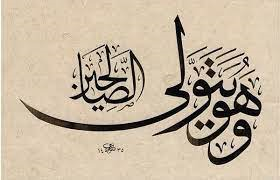 وَهُوَ يَتَوَلَّى الصَّالِحِينَ